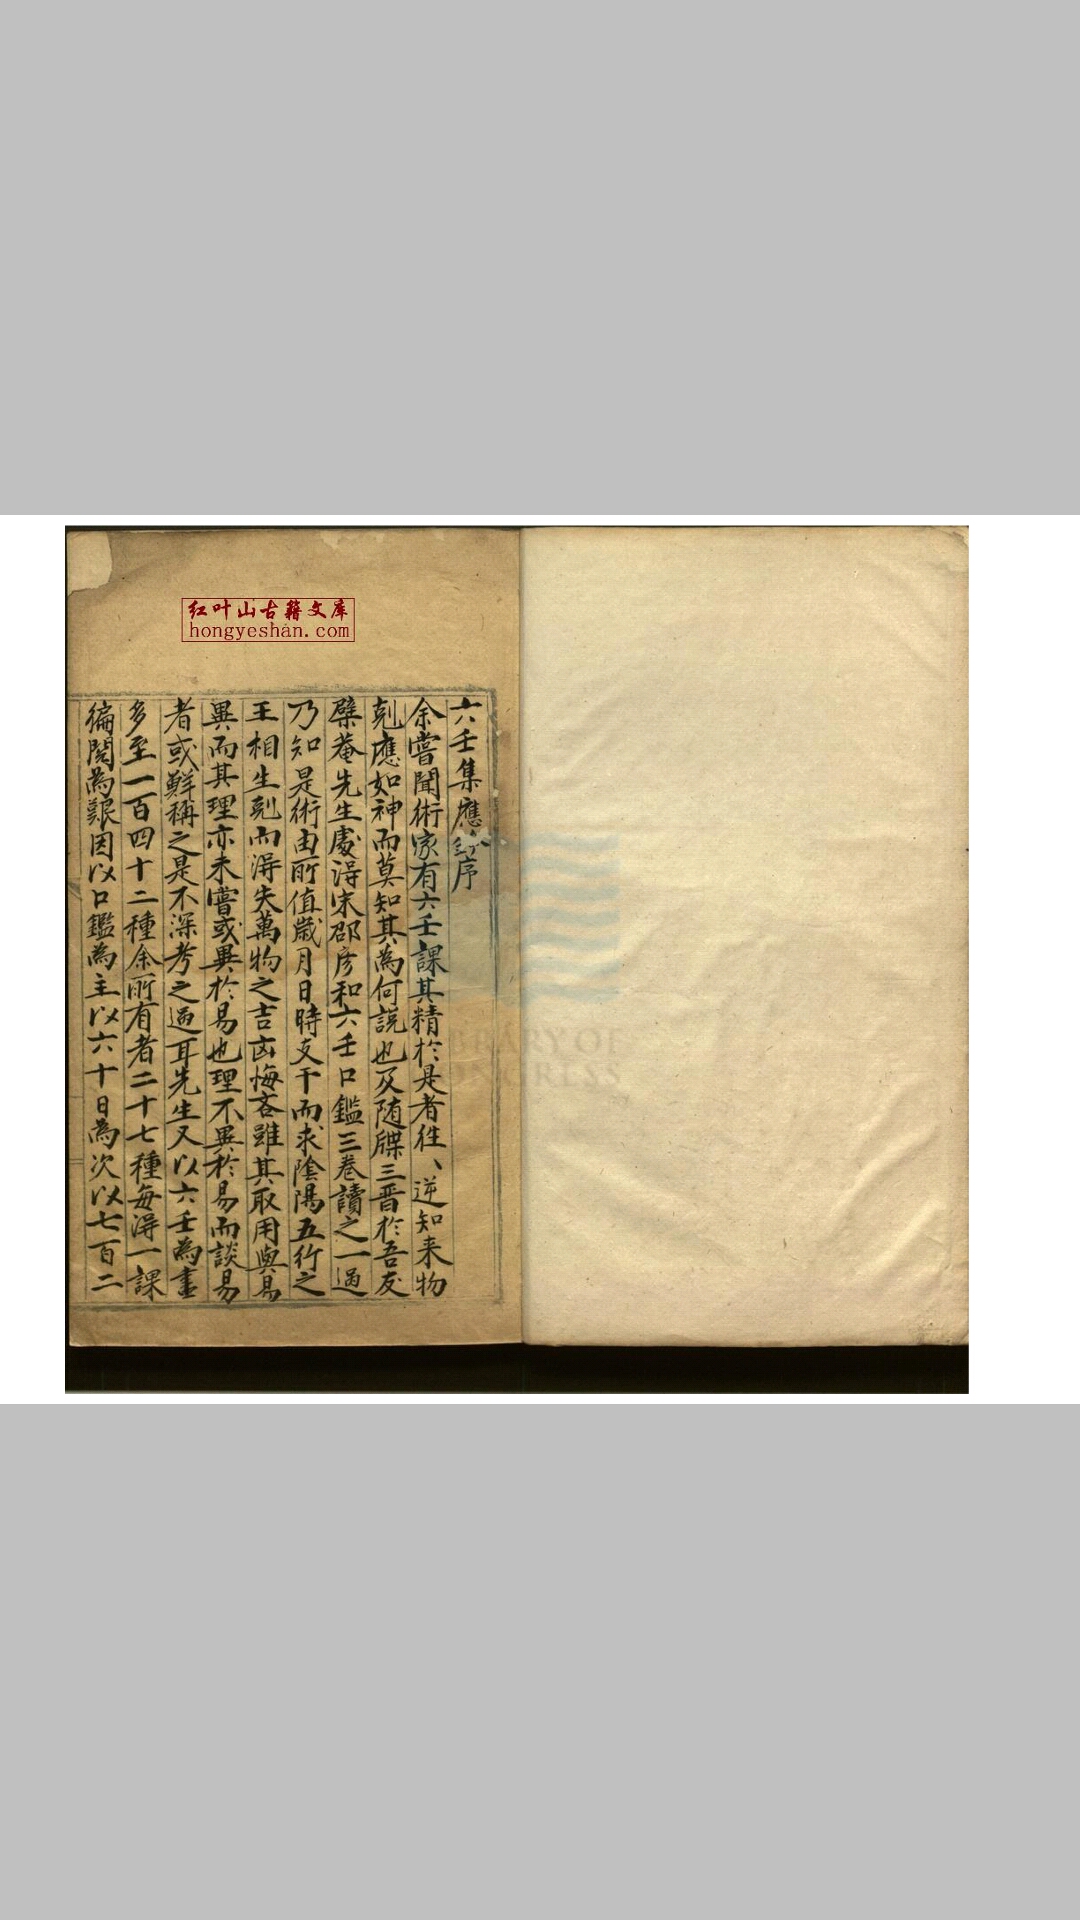 红叶山古籍文库
hongyeshan.com
六壬集應鈐序
余嘗聞術家有六壬課其精於是者往、逆知来物
剋應如神而莫知其為何説也及随牒三晋於吾友
檗菴先生處淂宋邵彦和六壬口鑑三卷讀之一過
乃知是術由所值歳月日時支干而求陰陽五行之
王相生剋而淂失萬物之吉凶悔吝雖其取用與易
異而其理亦未嘗或異於易也理不異於易而談易
者或鮮稱之是不深考之過耳先生又以六壬為書
多至一百四十二種余所有者二十七種每淂一課
徧閲為艱因以口鑑為主以六十日為次以七百二
LIBRARY OF
CONGRESS